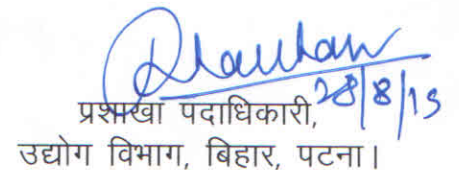 28/8/15
प्रशाखा पदाधिकारी,
उद्योग विभाग, बिहार, पटना।